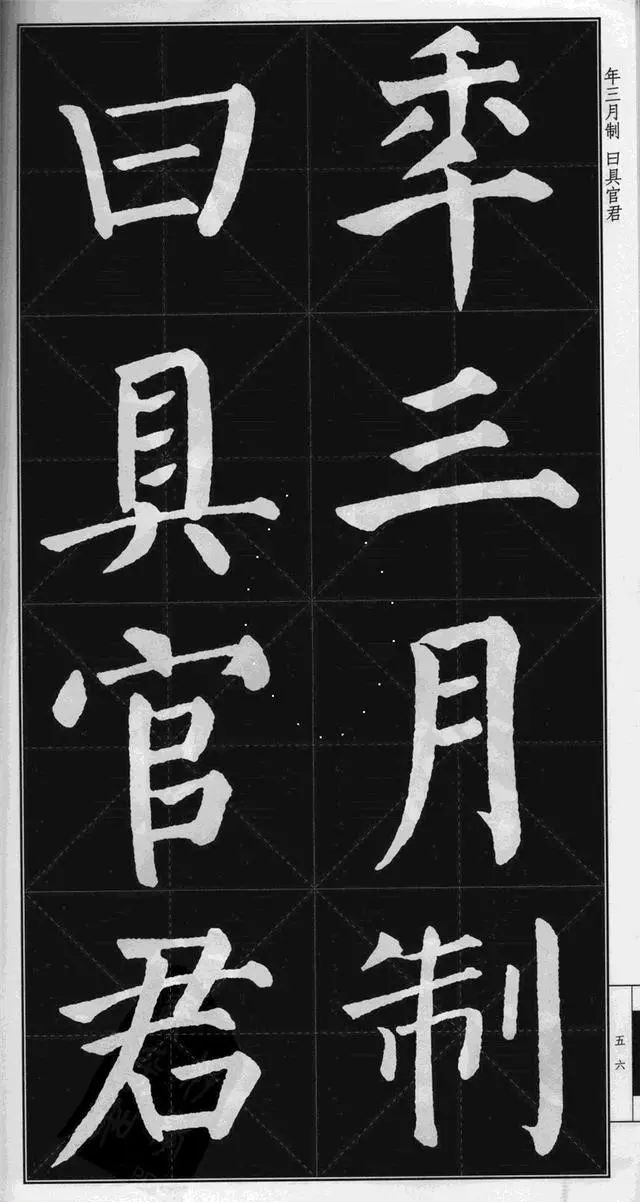 年三月制 曰具官君
年三月制
曰具官君
五六